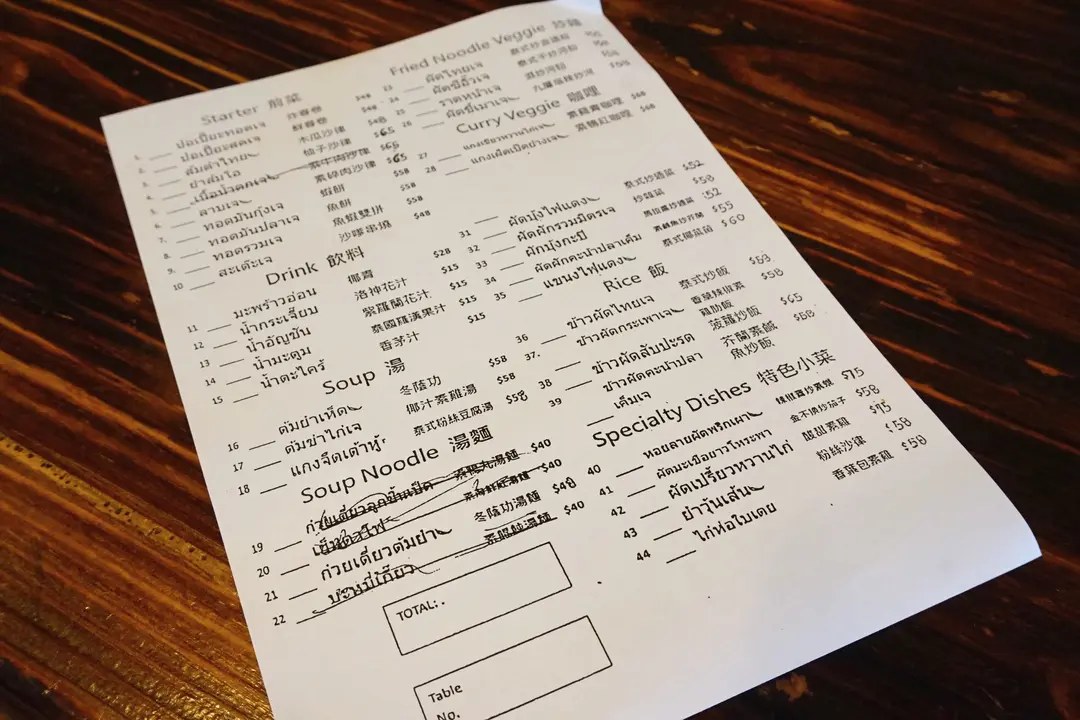 Starter 前菜
1. ปอเปี๊ยะทอดเจ 炸春卷 $48
2. ปอเปี๊ยะสดเจ 鮮春卷 $48
3. ส้มตำไทย 木瓜沙律 $48
4. ยำส้มโอ 柚子沙律 $65
5. เนื้อน้ำตกเจ 素牛肉沙律 $65
6. ลาบเจ 素碎肉沙律 $65
7. ทอดมันกุ้งเจ 蝦餅 $58
8. ทอดมันปลาเจ 魚餅 $58
9. ทอดรวมเจ 魚蝦雙拼 $58
10 สะเต๊ะเจ 沙嗲串燒 $48
Drink 飲料
11 มะพร้าวอ่อน 椰青 $28
12 น้ำกระเจี๊ยบ 洛神花汁 $15
13 น้ำอัญชัน 紫羅蘭花汁 $15
14 น้ำมะตูม 泰國羅漢果汁 $15
15 น้ำตะไคร้ 香茅汁 $15
Soup 湯
16 ต้มยำเห็ด 冬陰功 $58
17 ต้มข่าไก่เจ 椰汁素雞湯 $58
18 แกงจืดเต้าหู้ 泰式粉絲豆腐湯 $58
Soup Noodle 湯麵
19 $40
20 $40
21 ก๋วยเตี๋ยวต้มยำ 冬陰功湯麵 $48
22 บะหมี่เกี๊ยว $40
TOTAL:.
Table
No.
Fried Noodle Veggie 炒麵
23 ผัดไทยเจ
24 ผัดซีอิ๊วเจ 泰式干炒河粉
25 ราดหน้าเจ 濕炒河粉
26 ผัดขี้เมาเจ
Curry Veggie 咖哩
27 แกงเขียวหวานไก่เจ 素雞青咖哩 $68
28 แกงเผ็ดเป็ดย่างเจ 素鴨紅咖哩 $68
31 ผัดบุ้งไฟแดง 泰式炒通菜 $52
32 ผัดผักรวมมิตรเจ 炒雜菜 $58
33 ผักบุ้งกะปิ 馬拉盞炒通菜 $52
34 ผัดผักคะน้าปลาเค็ม 素鹹魚炒芥蘭 $55
35 แขนงไฟแดง 泰式椰菜苗 $60
Rice 飯
36 ข้าวผัดไทยเจ 泰式炒飯 $58
37. ข้าวผัดกระเพาเจ 香葉辣椒素雞肋飯 $58
38 ข้าวผัดสับปะรด 菠蘿炒飯 $65
39 ข้าวผัดคะน้าปลาเค็มเจ 芥蘭素鹹魚炒飯 $58
Specialty Dishes 特色小菜
40 หอยลายผัดพริกเผา $75
41 ผัดมะเขือยาวโหระพา 金不換炒茄子 $58
42 ผัดเปรี้ยวหวานไก่ 酸甜素雞
43 ยำวุ้นเส้น 粉絲沙律 $58
44 ไก่ห่อใบเตย 香葉包素雞 $58